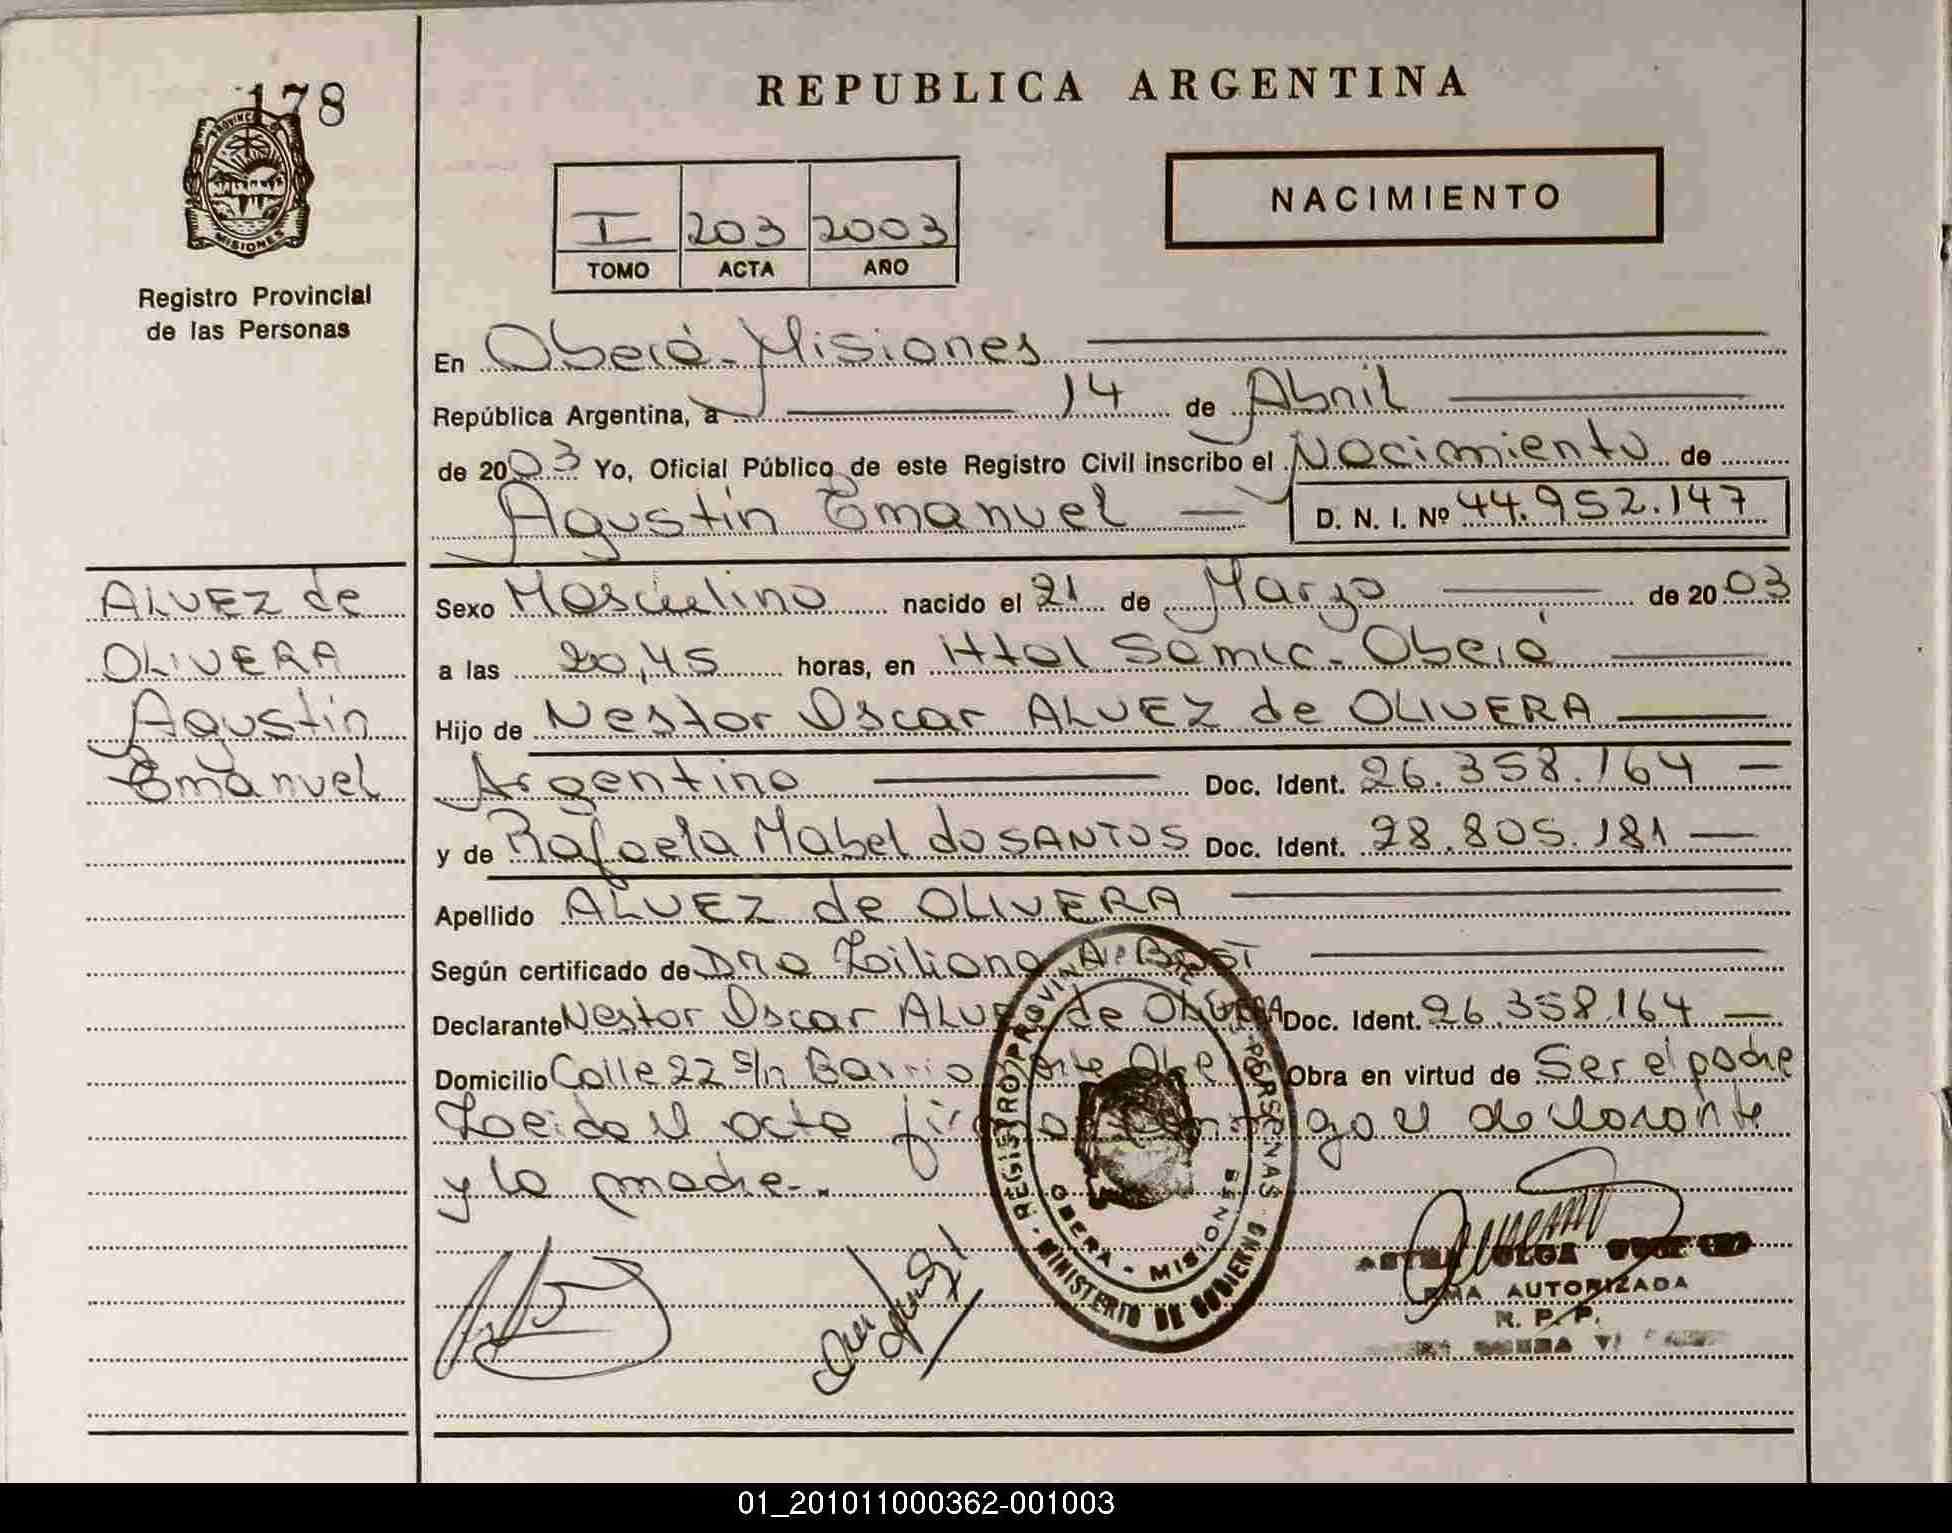 178
PROVINCIA DE
MISIONES
Registro Provincial
de las Personas
REPUBLICA ARGENTINA
I 203 2003
TOMO ACTA AÑO
NACIMIENTO
En Oberá - Misiones
República Argentina, a 14 de Abril
de 2003 Yo, Oficial Público de este Registro Civil inscribo el Nacimiento de
Agustin Emanuel D. N. I. Nº 44.952.147
ALVEZ de
OLIVERA
Agustin
Emanuel
Sexo Masculino nacido el 21 de Marzo de 2003
a las 20,45 horas, en Htal Samic - Oberá
Hijo de Nestor Oscar ALVEZ de OLIVERA
Argentino Doc. Ident. 26.358.164
y de Rafaela Mabel do SANTOS Doc. Ident. 28.805.181
Apellido ALVEZ de OLIVERA
Según certificado de Dra Liliana A.
Declarante Nestor Oscar ALVEZ de OLIVERA Doc. Ident. 26.358.164
Domicilio Calle 22 s/n Barrio Obra en virtud de Ser el padre
Leida el acta firma conmigo el declarante
y la madre.
REGISTRO PROVINCIAL DE LAS PERSONAS
OBERA - MISIONES
MINISTERIO DE GOBIERNO
OLGA
FMA AUTORIZADA
R. P. P.
01_201011000362-001003